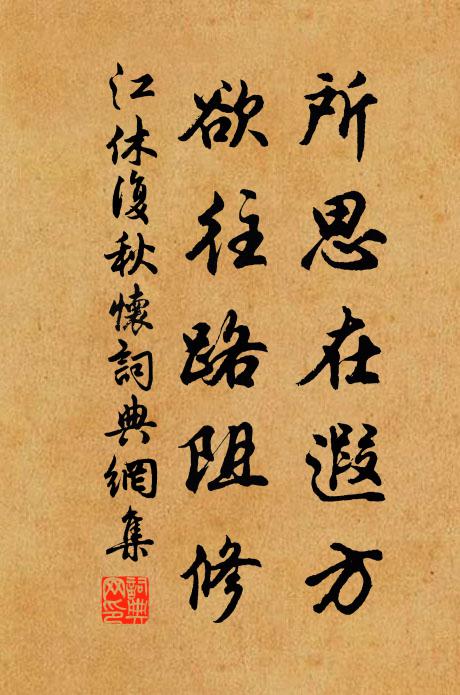 所思在遐方
欲往路阻修
江休復秋懷詞典網集
詞典网印